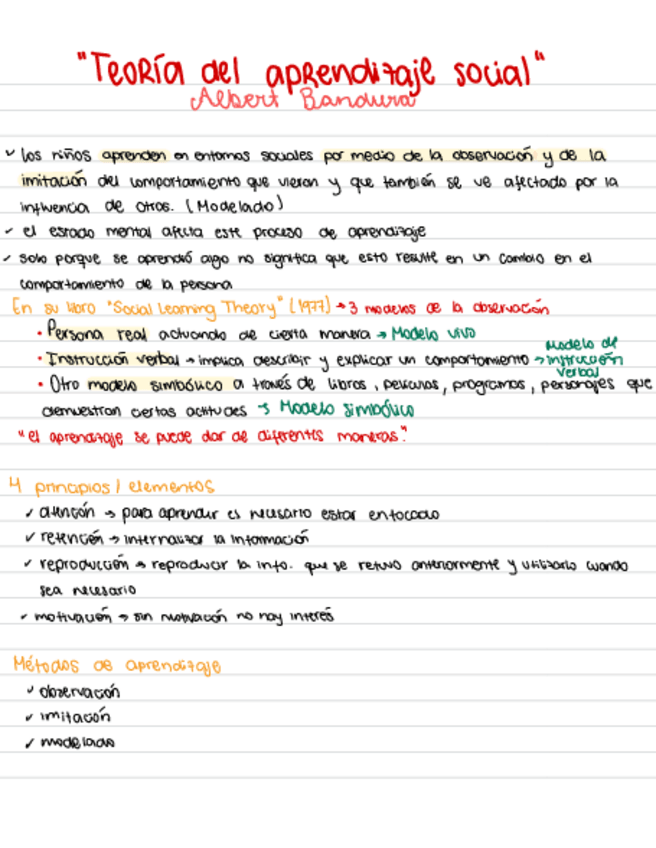 "Teoría del aprendizaje social"
Albert Bandura
✓ los niños aprenden en entornos sociales por medio de la observación y de la
imitación del comportamiento que vieron y que también se ve afectado por la
influencia de otros. (Modelado)
✓ el estado mental afecta este proceso de aprendizaje
✓ solo porque se aprendió algo no significa que esto resulte en un cambio en el
comportamiento de la persona
En su libro "Social Learning Theory" (1977) → 3 modelos de la observación
• Persona real actuando de cierta manera → Modelo vivo
• Instrucción verbal → implica describir y explicar un comportamiento → Modelo de instrucción verbal
• Otro modelo simbólico a través de libros, películas, programas, personajes que
demuestran ciertas actitudes → Modelo simbólico
"el aprendizaje se puede dar de diferentes maneras."
4 principios / elementos
✓ atención → para aprender es necesario estar enfocado
✓ retención → internalizar la información
✓ reproducción → reproducir la info. que se retuvo anteriormente y utilizarlo cuando
sea necesario
✓ motivación → sin motivación no hay interés
Métodos de aprendizaje
✓ observación
✓ imitación
✓ modelado